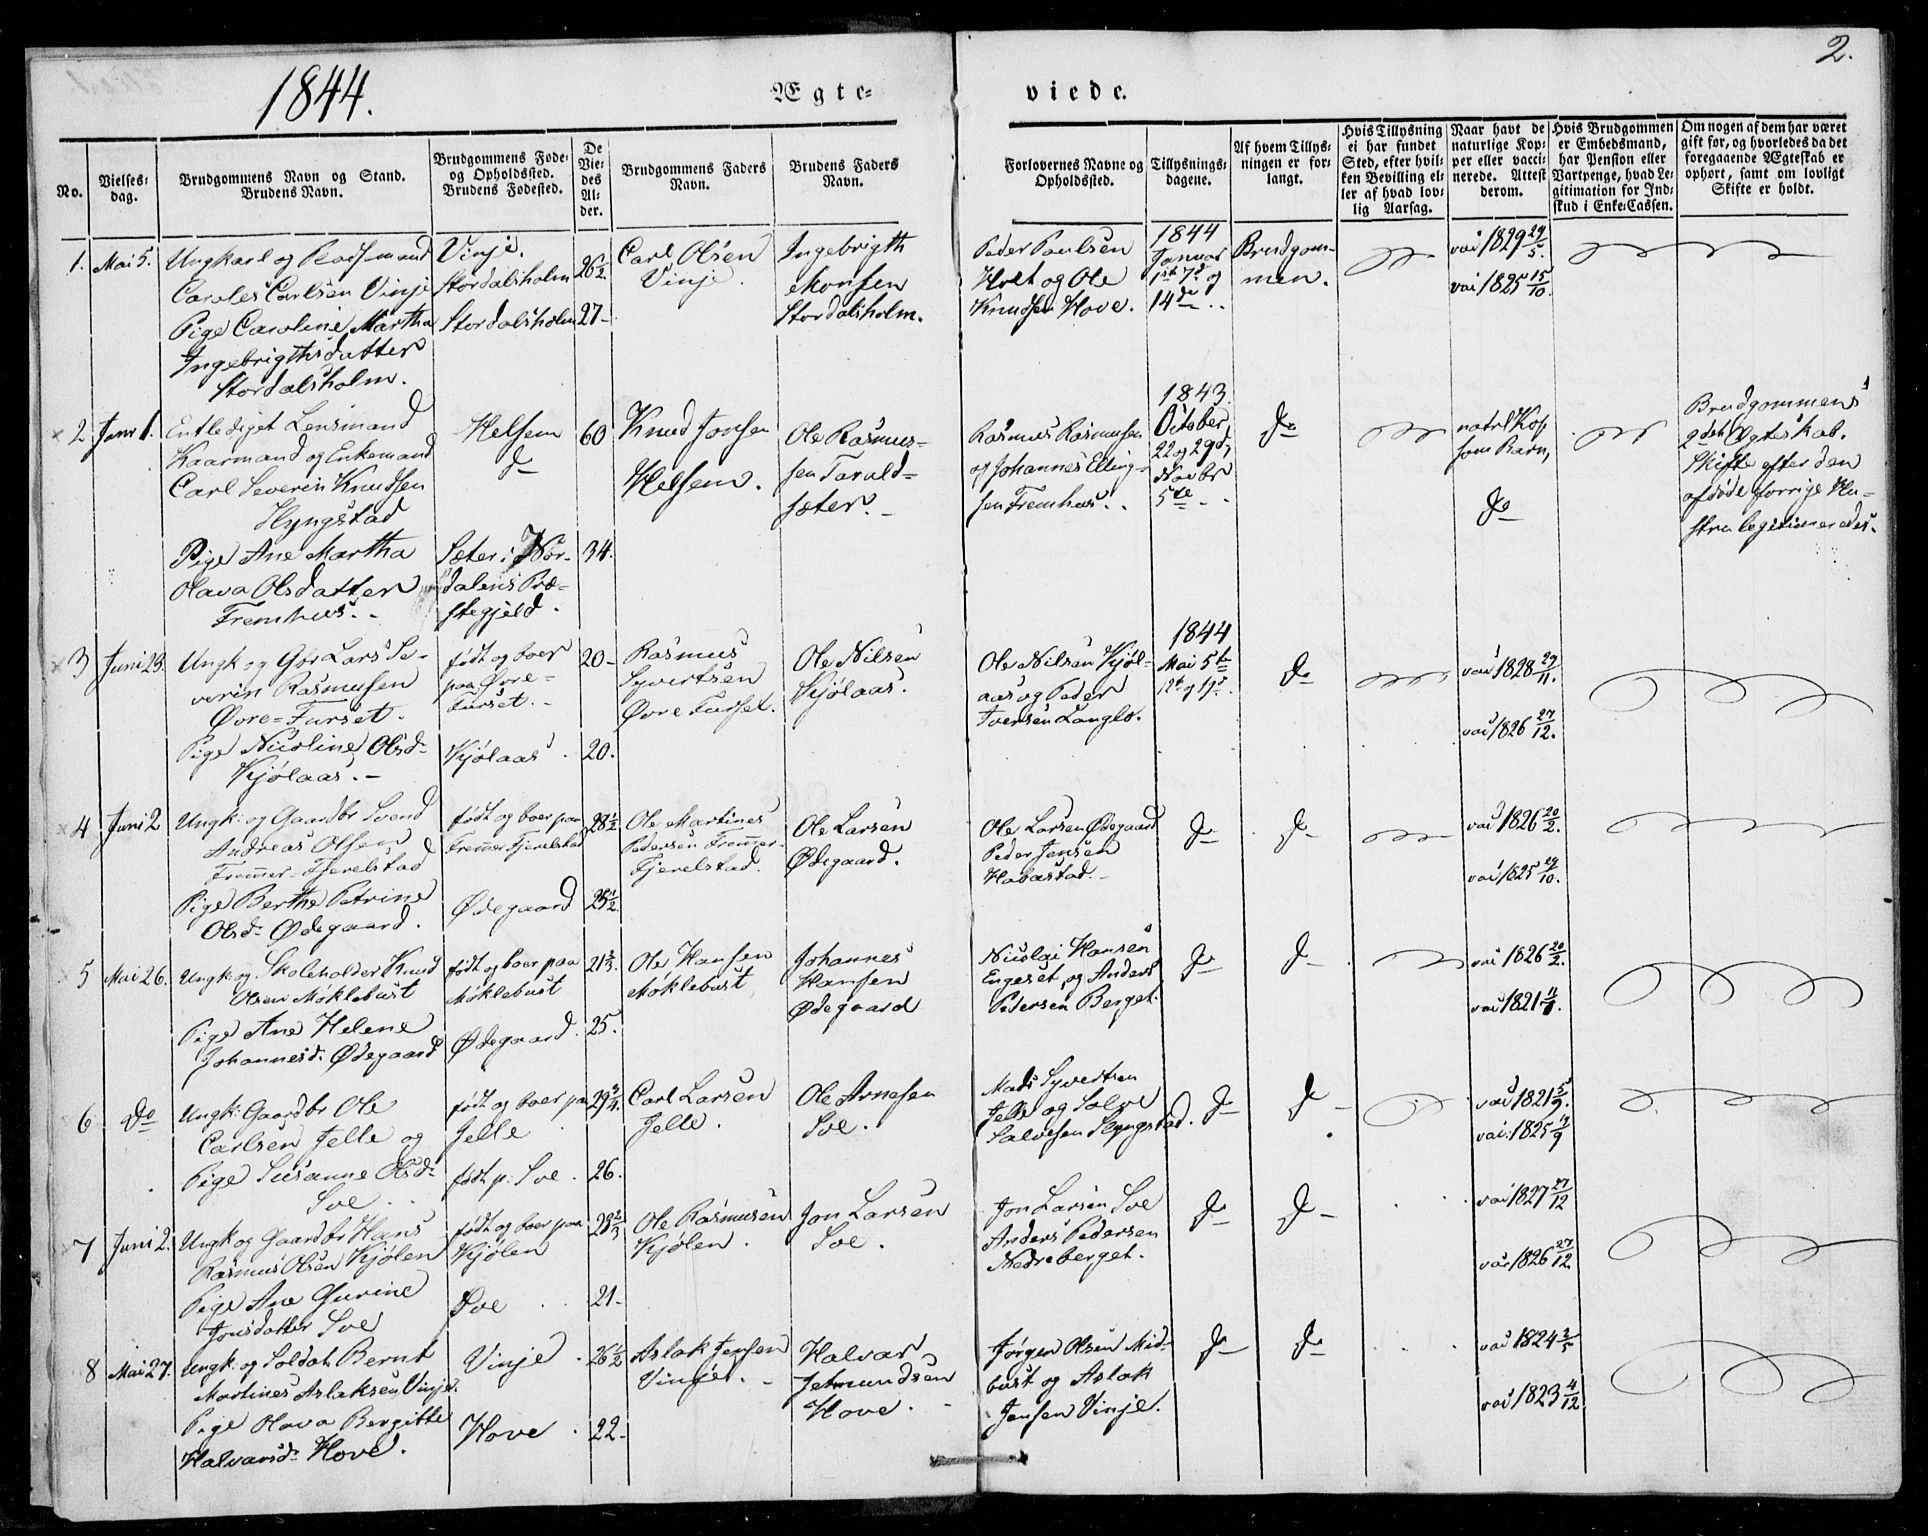 2.
1844.
Ægte-
viede.
No.
Vielses-
dag.
Brudgommens Navn og Stand.
Brudens Navn.
Brudgommens Føde-
og Opholdssted.
Brudens Fødested.
De
Vie-
des
Al-
der.
Brudgommens Faders
Navn.
Brudens Faders
Navn.
Forlovernes Navne og
Opholdssted.
Tillysnings-
dagene.
Af hvem Tillys-
ningen er for-
langt.
Hvis Tillysning
ei har fundet
Sted, efter hvil-
ken Bevilling el-
ler af hvad lov-
lig Aarsag.
Naar havt de
naturlige Kop-
per eller vacci-
nerede. Attest
derom.
Hvis Brudgommen
er Embedsmand,
har Pension eller
Vartpenge, hvad Le-
gitimation for Ind-
skud i Enke-Cassen.
Om nogen af dem har været
gift før, og hvorledes da det
foregaaende Ægteskab er
ophørt, samt om lovligt
Skifte er holdt.
1.
Mai 5.
Ungkarl og
Caroles Carlsen Vinje
Pige Caroline Martha
Ingebrigthsdatter
Stordalsholm.
Vinje.
Stordalsholm
Stordalsholm
26 1/2
27-
Carl Olsen
Vinje.
Ingebrigth
Monsen
Stordalsholm.
Peder Paulsen
Holt og Ole
Knudsen Hove.
1844
Januar
1st 7d og
14de
Brudgom-
men.
vac 1829 29/5
vac 1825 15/10.
2
Juni 1.
Entlediget Lensmand
Kaarmand og Enkemand
Carl Severin Knudsen
Slyngstad
Pige Ane Martha
Olava Olsdatter
Fremhus.-
Helsem
do
Sæter i Nor-
dalens Præ-
stegjeld.
60
34.
Knud Jonsen
Helsem.
Ole Rasmus-
sen Tarald-
sæter.-
Rasmus Rasmusen
og Johannes Elling-
sen Fremhus.
1843.
October
22 og 29d,
Novbr
5te
do
natrl Kop
som Barn,
do
Brudgommens
2det Ægteskab.
Skifte efter den
afdøde forrige Hu-
stru legitimeredes.
3
Juni 23.
Ungk og Gbr Lars Se-
verin Rasmusen
Øvre-Furset.
Pige Nicoline Olsd-
Kjølaas.-
født og boer
paa Øvre-
Furset.-
Kjølaas.
20-
20.
Rasmus
Syvertsen
Øvre Furset.
Ole Nilsen
Kjølaas.
Ole Nilsen Kjøl-
aas og Peder
Iversen Langlo.
1844
Mai 5te
12t og 19d.
do
vac 1828 29/11.
vac 1826 27/12.
4
Juni 2
Ungk: og Gaardbr Svend
Andreas Olsen
Fremer-Fjerelstad
Pige Berthe Petrine
Olsd- Ødegaard.
født og boer paa
Fremer Fjerelstad
Ødegaard
28 1/2
25 1/2.
Ole Martines
Pedersen Fremer-
Fjerelstad.
Ole Larsen
Ødegaard.
Ole Larsen Ødegaard
Peder Jensen
Habostad.-
do
do
vac 1826 20/2.
vac 1825 29/10.
5
Mai 26.
Ungk: og Skoleholder Knud
Olsen Møklebust
Pige Ane Helene
Johannesd: Ødegaard
født og boer paa
Møklebust
Ødegaard.
21 2/3.
25.
Ole Hansen
Møklebust
Johannes
Hansen
Ødegaard
Nicolai Hansen
Engeset, og Anders
Pedersen Berget.
do
do
vac 1826 20/2.
vac 1821
6
do
Ungk: Gaardbr Ole
Carlsen Jelle og
Pige Susanne Olsd-
Soe
født og boer paa
Jelle
født p. Soe.
29 3/4.
26.
Carl Larsen
Jelle.
Ole Arnesen
Soe.
Mads Syvertsen
Jelle og Salve
Salvesen Slyngstad.
do
do
vac 1821 5/9.
vac: 1825
7
Juni 2.
Ungk og Gaardbr Hans
Rasmus Olsen Kjølen
Pige Ane Gurine
Jonsdatter Soe
født og boer paa
Kjølen
Soe
23 2/3
21-
Ole Rasmusen
Kjølen.
Jon Larsen
Soe.
Jon Larsen Soe
Anders Pedersen
Nedreberget.
do
do
vac 1827 27/12
vac 1826 27/12.
8
Mai 27.
Ungk: og Soldat Bernt
Martines Aslaksen Vinje.
Pige Olava Bergitte
Halvarsd- Hove.
Vinje.
Hove.
26 1/2
22-
Aslak Jensen
Vinje.-
Halvar
Jetmundsen
Hove.
Jørgen Olsen Mid-
bust og Aslak
Jensen Vinje.
do
do
vac 1824 2/5
vac 1823 4/12.